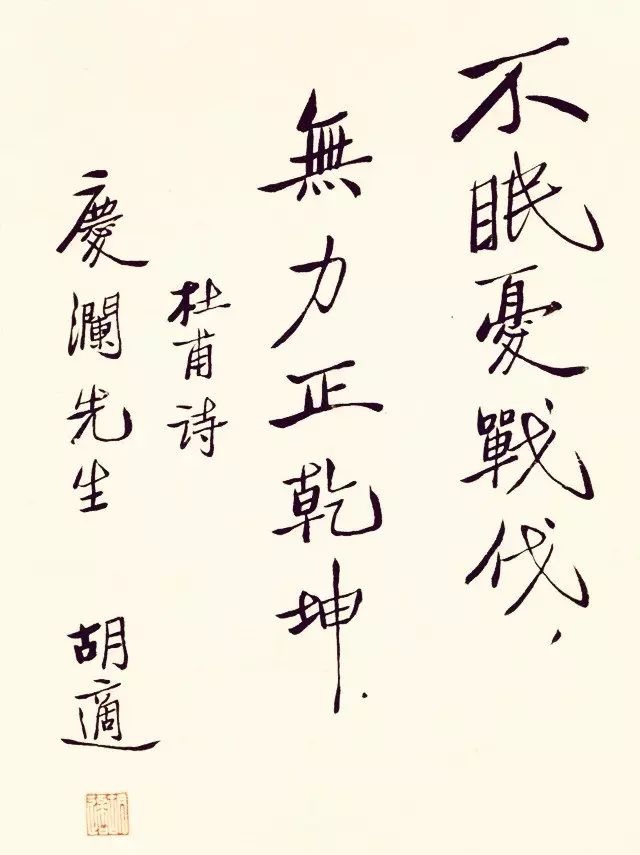 不眠憂戰伐，
無力正乾坤.
杜甫詩
慶瀾先生
胡適